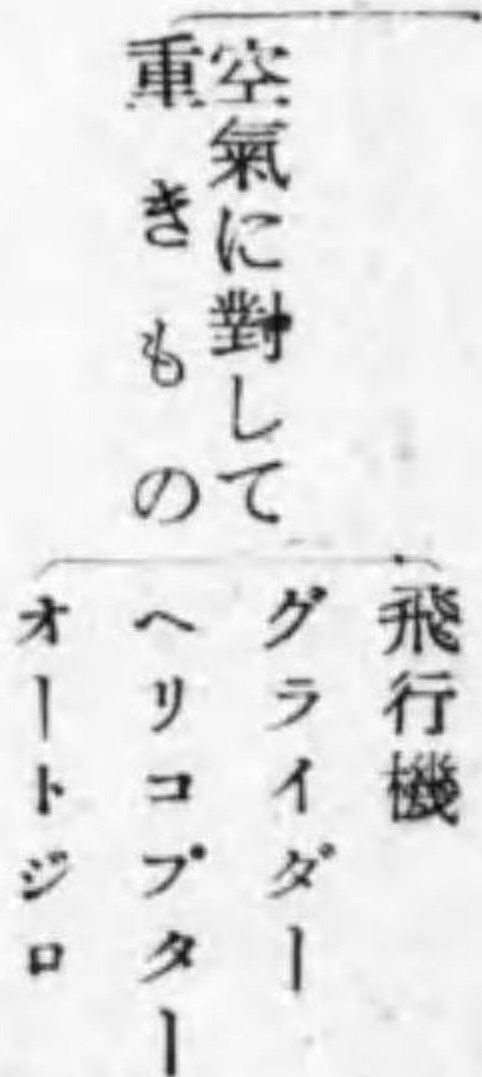 空氣に對して
重きもの
飛行機
グライダー
ヘリコプター
オートジロ